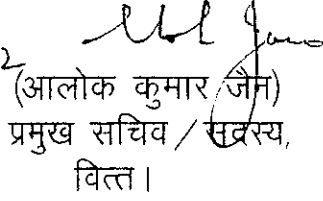 2
(आलोक कुमार जैन)
प्रमुख सचिव / सदस्य,
वित्त।